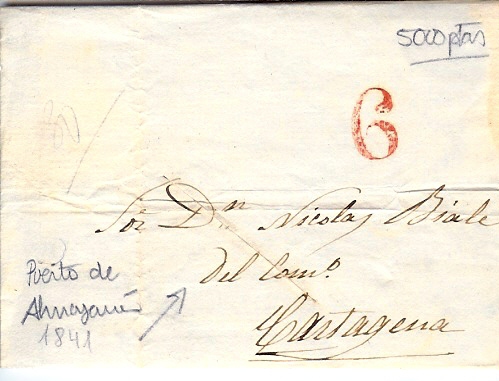 5000 ptas
6
Sor Dn Nicolas Biale
del Como.
Cartagena
Puerto de
1841